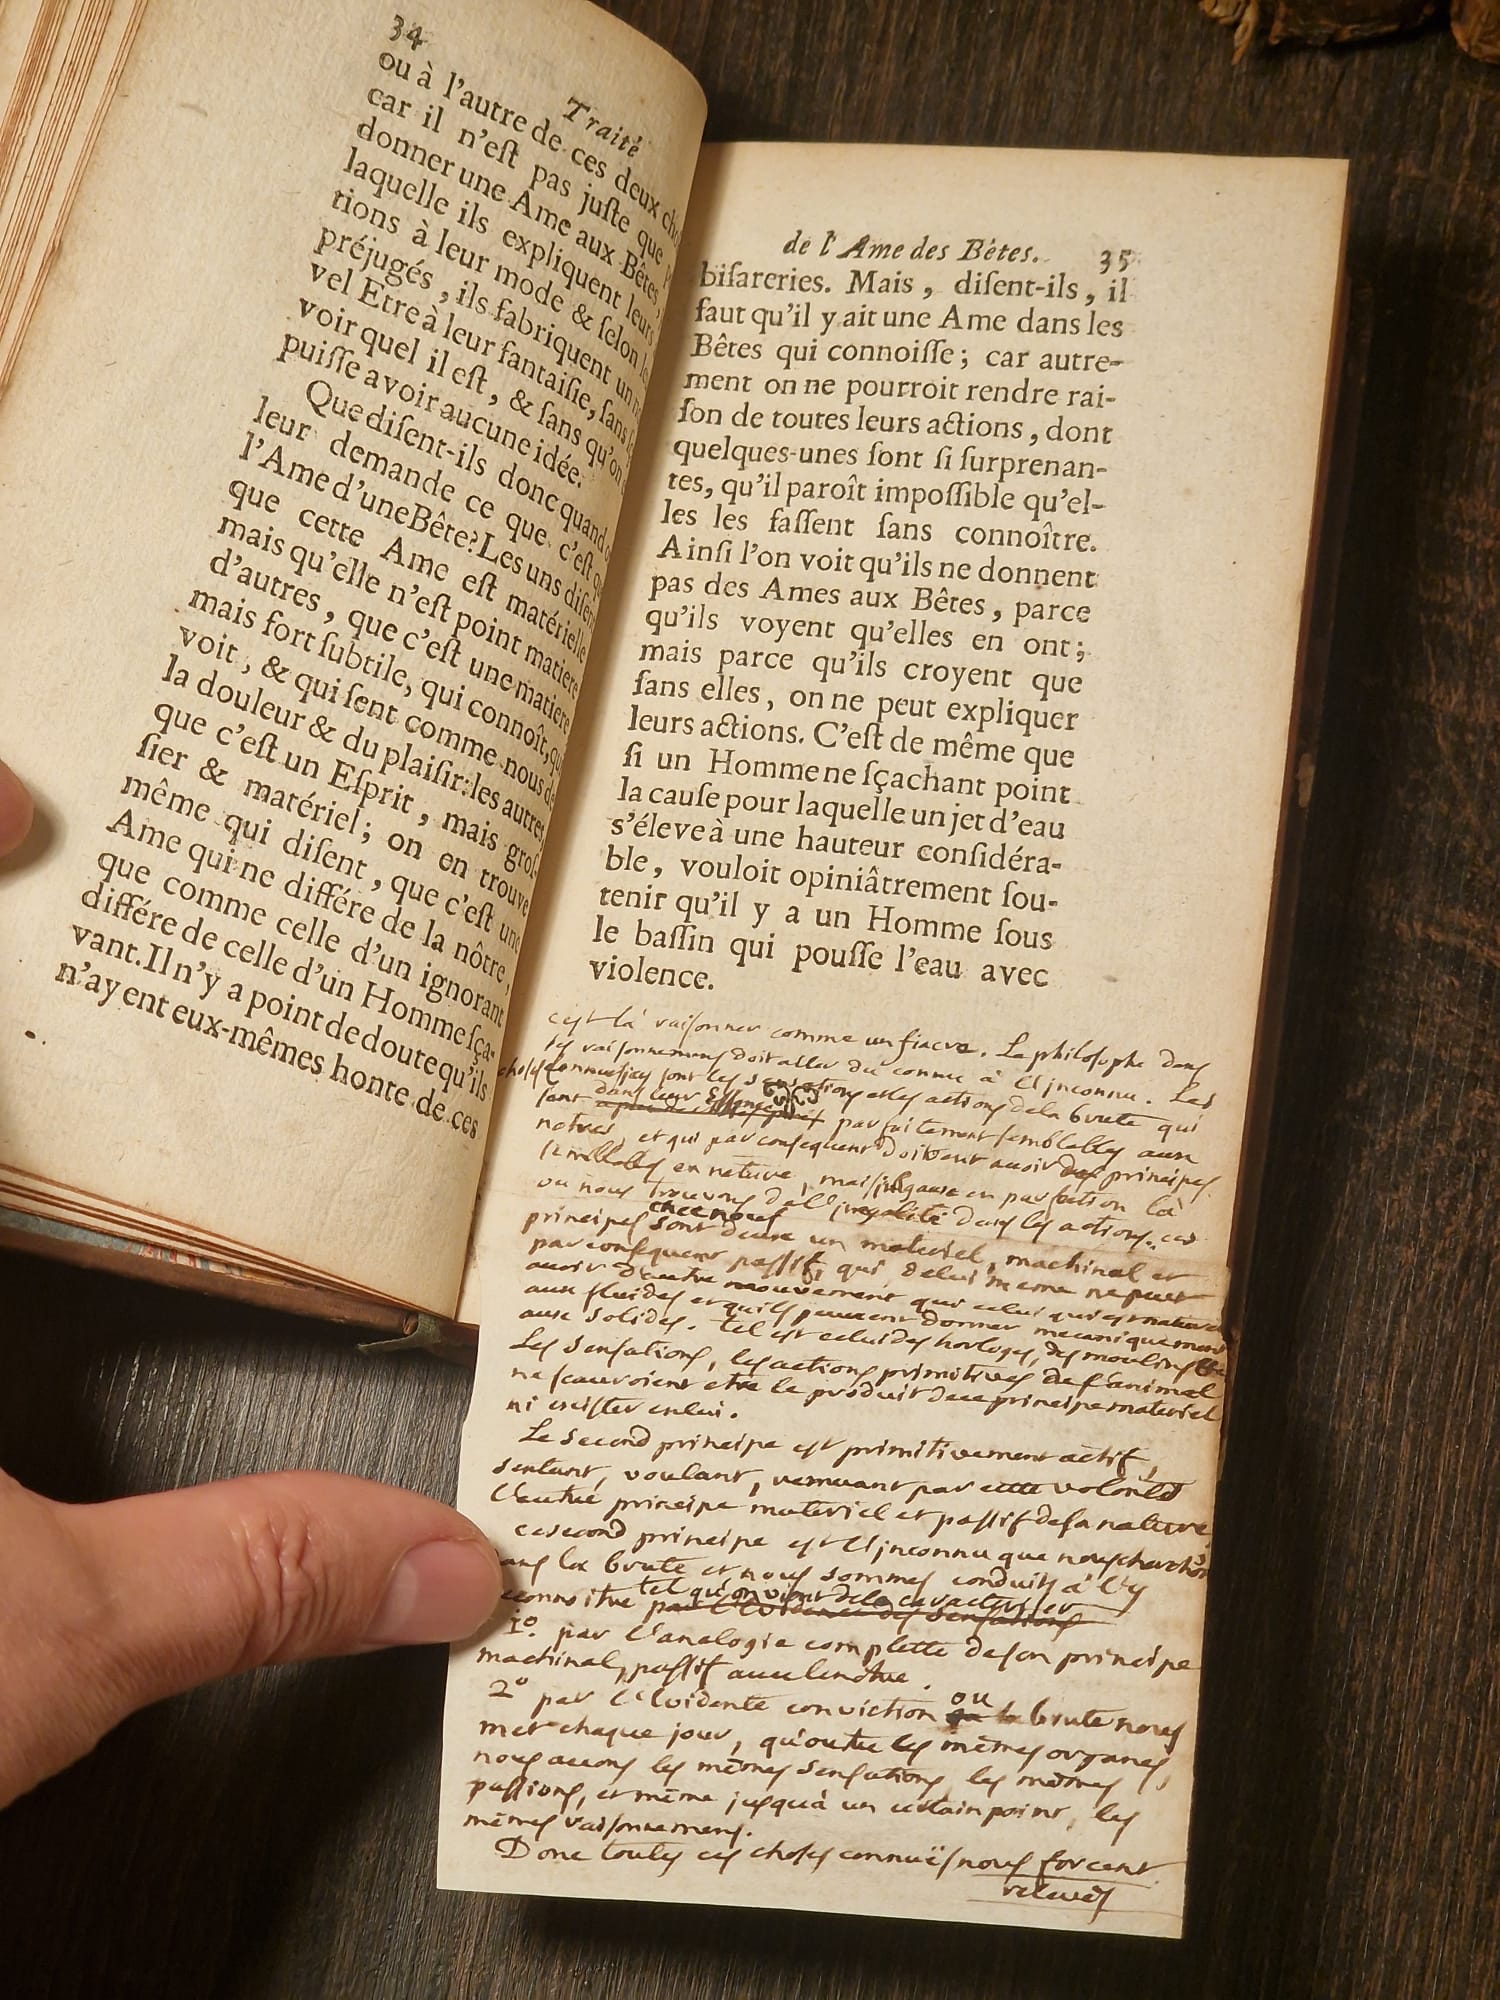 34
Traité
ou à l'autre de ces deux
car il n'eſt pas juſte que
donner une Ame aux Bêtes,
laquelle ils expliquent leurs
tions à leur mode & ſelon
préjugés, ils fabriquent un
vel Etre à leur fantaiſie, ſans
voir quel il eſt, & ſans qu'on
puiſſe avoir aucune idée.
Que diſent-ils donc quand
leur demande ce que c'eſt
l'Ame d'une Bête? Les uns diſent
que cette Ame eſt matérielle
mais qu'elle n'eſt point matiere
d'autres, que c'eſt une matiere
mais fort ſubtile, qui connoît, qui
voit, & qui ſent comme nous de
la douleur & du plaiſir: les autres,
que c'eſt un Eſprit, mais groſ-
ſier & matériel; on en trouve
même qui diſent, que c'eſt une
Ame qui ne différe de la nôtre,
que comme celle d'un ignorant
différe de celle d'un Homme ſça-
vant. Il n'y a point de doute qu'ils
n'ayent eux-mêmes honte de ces
de l'Ame des Bêtes. 35
biſareries. Mais, diſent-ils, il
faut qu'il y ait une Ame dans les
Bêtes qui connoiſſe; car autre-
ment on ne pourroit rendre rai-
ſon de toutes leurs actions, dont
quelques-unes ſont ſi ſurprenan-
tes, qu'il paroît impoſſible qu'el-
les les faſſent ſans connoître.
Ainſi l'on voit qu'ils ne donnent
pas des Ames aux Bêtes, parce
qu'ils voyent qu'elles en ont;
mais parce qu'ils croyent que
ſans elles, on ne peut expliquer
leurs actions. C'eſt de même que
ſi un Homme ne ſçachant point
la cauſe pour laquelle un jet d'eau
s'éleve à une hauteur conſidéra-
ble, vouloit opiniâtrement ſou-
tenir qu'il y a un Homme ſous
le baſſin qui pouſſe l'eau avec
violence.
c'est là raiſonner comme un fiacre. Le philoſophe dans
ſes raiſonnemens doit aller du connu à l'inconnu. Les
choſes connues ici ſont les sensations et les actions de la brute qui
ſont dans leur Eſſence parfaitement ſemblables aux
notres, et qui par conſequent doivent avoir des principes
ſemblables en nature, mais inegaux en perfection là
ou nous trouvons de l'inegalité dans les actions. ces
principes chez nous sont deux un materiel, machinal et
par conſequent paſſif, qui de lui meme ne peut
avoir d'autre mouvement que celui qui est naturel
aux fluides et qu'ils peuvent donner mecaniquement
aux solides. tel est celui des horloges, des moulins
Les sensations, les actions primitives de l'animal
ne ſcauroient etre le produit de ce principe materiel
ni exister en lui.
Le second principe est primitivement actif,
sentant, voulant, remuant par cette volonté
l'autre principe materiel et paſſif de ſa nature
ce second principe est l'inconnu que nous cherchons
dans la brute et nous sommes conduits à l'y
reconnoitre tel qu'on vient de le caracteriser
par l'Evidence des sensations
1º. par l'analogie complette de ſon principe
machinal, paſſif avec le notre.
2º par l'Evidente conviction ou la brute nous
met chaque jour, qu'outre les mêmes organes,
nous avons les mêmes sensations, les mêmes
paſſions, et même juſqu'à un certain point, les
mêmes raiſonnemens.
Donc toutes ces choſes connuës nous forcent